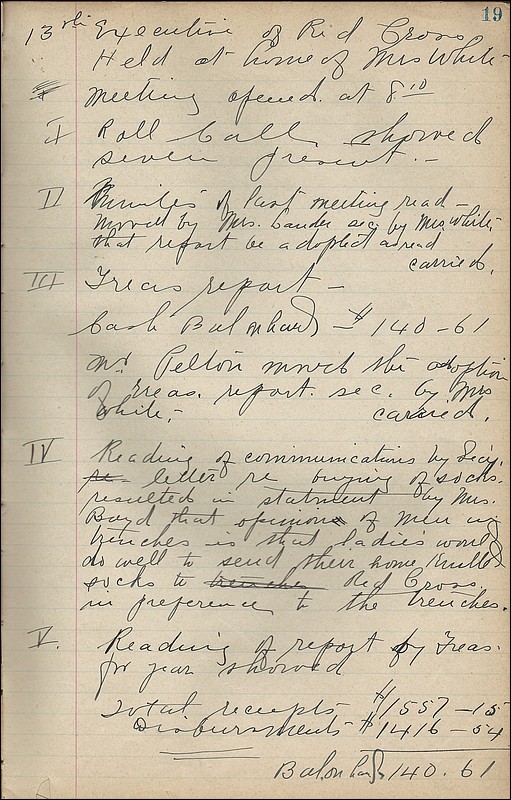 19
13th Executive of Red Cross
Held at home of Mrs White -
Meeting opened at 8 10
I Roll Call showed
seven present. -
II Minutes of last meeting read -
moved by Mrs. Cander sec. by Mrs. White.
that report be adopted as read
carried.
III Treas report -
Cash Bal on hand - $140-61
Mr Pelton moved the adoption
of Treas. report. sec. by Mrs
White. - carried.
IV Reading of communications by Secy.
letter re buying of socks.
resulted in statment by Mrs.
Boyd that opinion of men in
trenches is that ladies would
do well to send their home knitted
socks to trenches Red Cross
in preference to the trenches.
V. Reading of report by Treas.
for year showed
Total receipts $1557-15
Disbursments $1416-54
Bal on hand 140.61